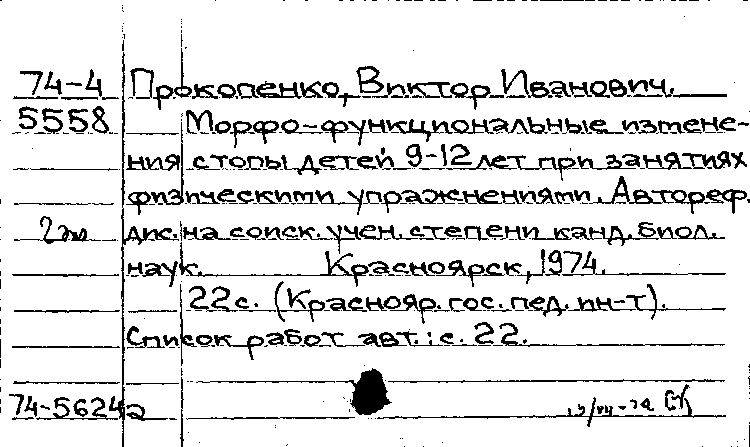 74-4 Прокопенко, Виктор Иванович.
5558 Морфо-функциональные измене-
ния стопы детей 9-12 лет при занятиях
физическими упражнениями. Автореф.
2 экз дис. на соиск. учен. степени канд. биол.
наук. Красноярск, 1974.
22 с. (Краснояр. гос. пед. ин-т).
Список работ авт.: с. 22.
74-56242